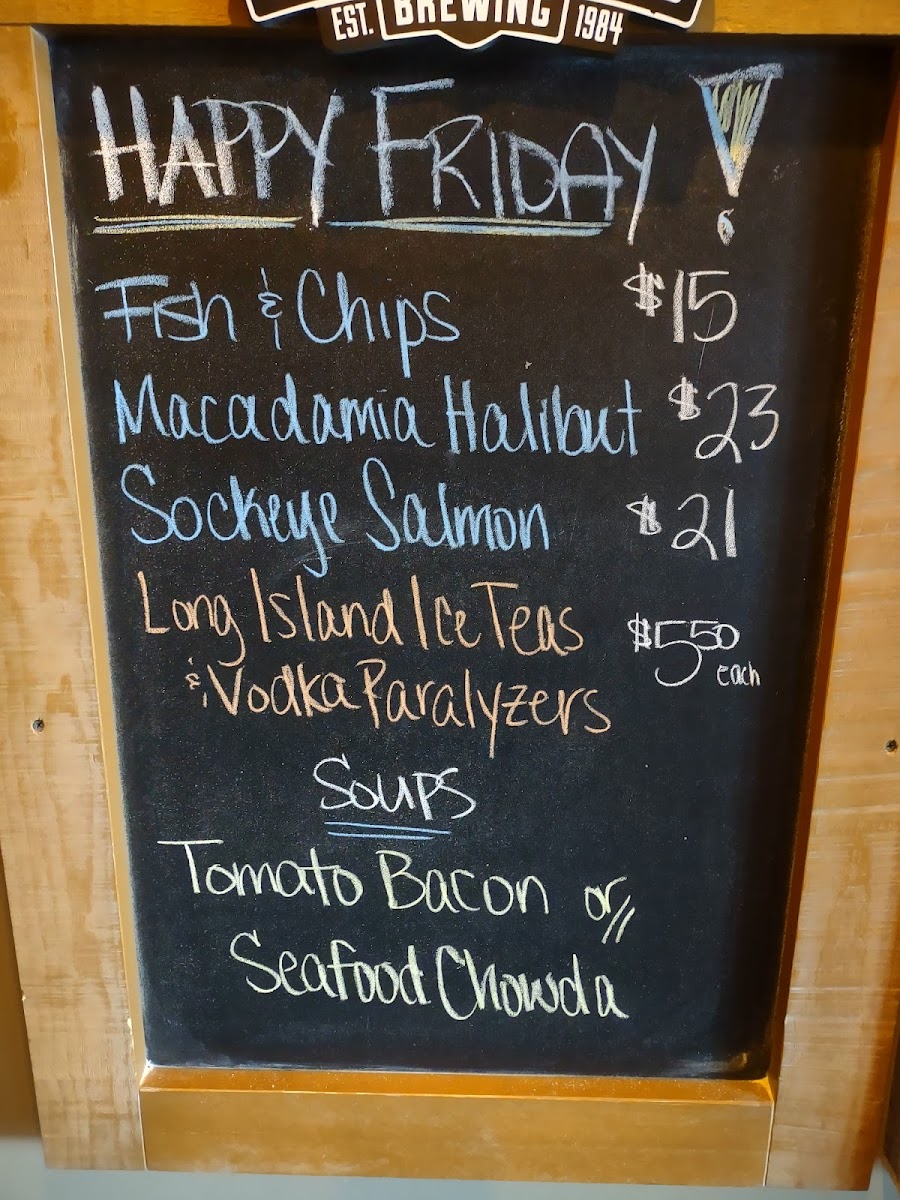 EST. BREWING 1984
HAPPY FRIDAY!
Fish & Chips $15
Macadamia Halibut $23
Sockeye Salmon $21
Long Island Ice Teas
& Vodka Paralyzers $5.50 each
Soups
Tomato Bacon or
Seafood Chowda